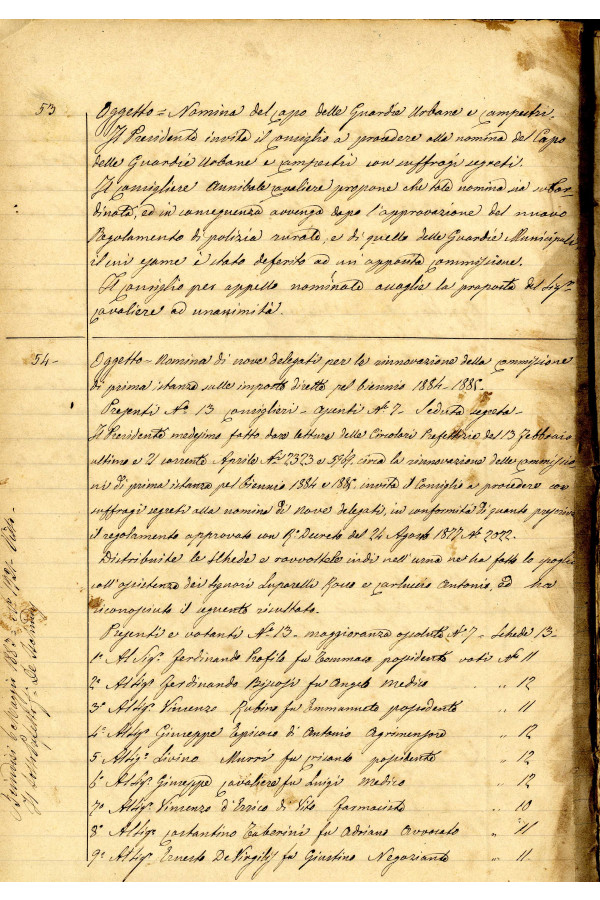 53
Oggetto = Nomina del Capo delle Guardie Urbane e Campestri.
Il Presidente invita il Consiglio a procedere alla nomina del Capo
delle Guardie Urbane e Campestri con suffragi segreti.
Il Consigliere Annibale Cavaliere propone che tale nomina sia subor-
dinata, ed in conseguenza avvenga dopo l'approvazione del nuovo
Regolamento di polizia rurale, e di quello delle Guardie Municipali
il cui esame è stato deferito ad un'apposita Commissione.
Il Consiglio per appello nominale accoglie la proposta del Sigr
Cavaliere ad unanimità.
54 -
Oggetto - Nomina di nove delegati per la rinnovazione della Commissione
di prima istanza sulle imposte dirette pel biennio 1884-1885.
Presenti No 13 Consiglieri - assenti No 7 - Seduta segreta -
Il Presidente medesimo fatto dare lettura delle Circolari Prefettizie del 13 Febbraio
ultimo e 21 corrente Aprile Ni 2323 e circa la rinnovazione delle Commissio
ni di prima istanza pel biennio 1884 e 1885, invita il Consiglio a procedere con
suffragi segreti alla nomina di nove delegati, in conformità di quanto prescrive
il regolamento approvato con Ro Decreto del 24 Agosto 1877 No 2022.
Distribuite le schede e raccoltele indi nell'urna ne ha fatto lo spoglio
coll'assistenza dei signori Luparelli Rocco e Carluccio Antonio, ed ha
riconosciuto il seguente risultato.
Presenti e votanti No 13 - maggioranza assoluta No 7 - Schede 13 -
1o Al Sigr Ferdinando Profilo fu Tommaso possidente voti No 11
2o Al Sigr Ferdinando fu Angelo Medico " 12
3o Al Sigr Vincenzo Rubino fu Emmanuele possidente " 11
4o Al Sigr Giuseppe Episcopo di Antonio Agrimensore " 12
5 Al Sigr Livino Murri fu possidente " 12
6o Al Sigr Giuseppe Cavaliere fu Luigi Medico " 12
7o Al Sigr Vincenzo d'Errico di Vito farmacista " 10
8o Al Sigr Costantino Taberini fu Adriano Avvocato " 11
9o Al Sigr Ernesto De Virgiliis fu Giustino Negoziante " 11 -
Brindisi 6 Maggio 1883 Visto -
Il